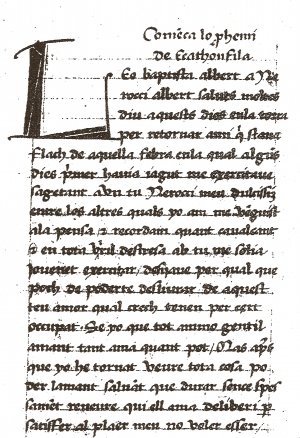 Comẽca lo ꝓhemi
De Ecathonfila
LEo baptista albert a Ne
rocci albert saluts moltes
diu aquests dies enla
per retornar
flach de aquella febra enla qual algũs
dies pꝛimer hauia iagut me exercitaue
tu Nerocci meu dulcissim
entre los altres quals
ala pensa ⁊ recordam quant
⁊ en tota destresa ab tu me solia
iouenet exercitar per qual que
poch de poderte desliurar de aquest
teu amor qual crech tenen per cert
occupat Se po que tot animo gentil
amant tant ama quant pot Mas
que po he tornat veure tota cosa po
der lamant saluãt que durar sence
reueure qui ell ama deliberi ꝑ
satisfer al plaer meu no voler esser